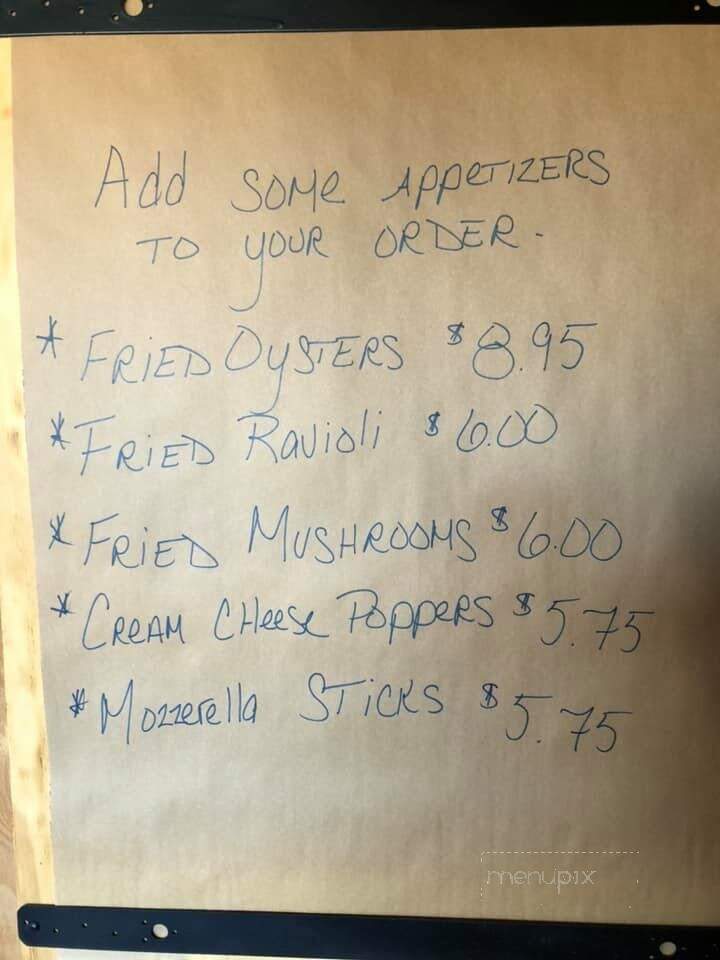 Add SOMe APPeTIZERS
TO yOUR ORDER -
* FRiED OySTERS $8.95
* FRiED Ravioli $6.00
* FRiED MUSHROOMS $6.00
* CReAM CHeese PoppeRS $5.75
* Mozzerella STicKS $5.75
menupix